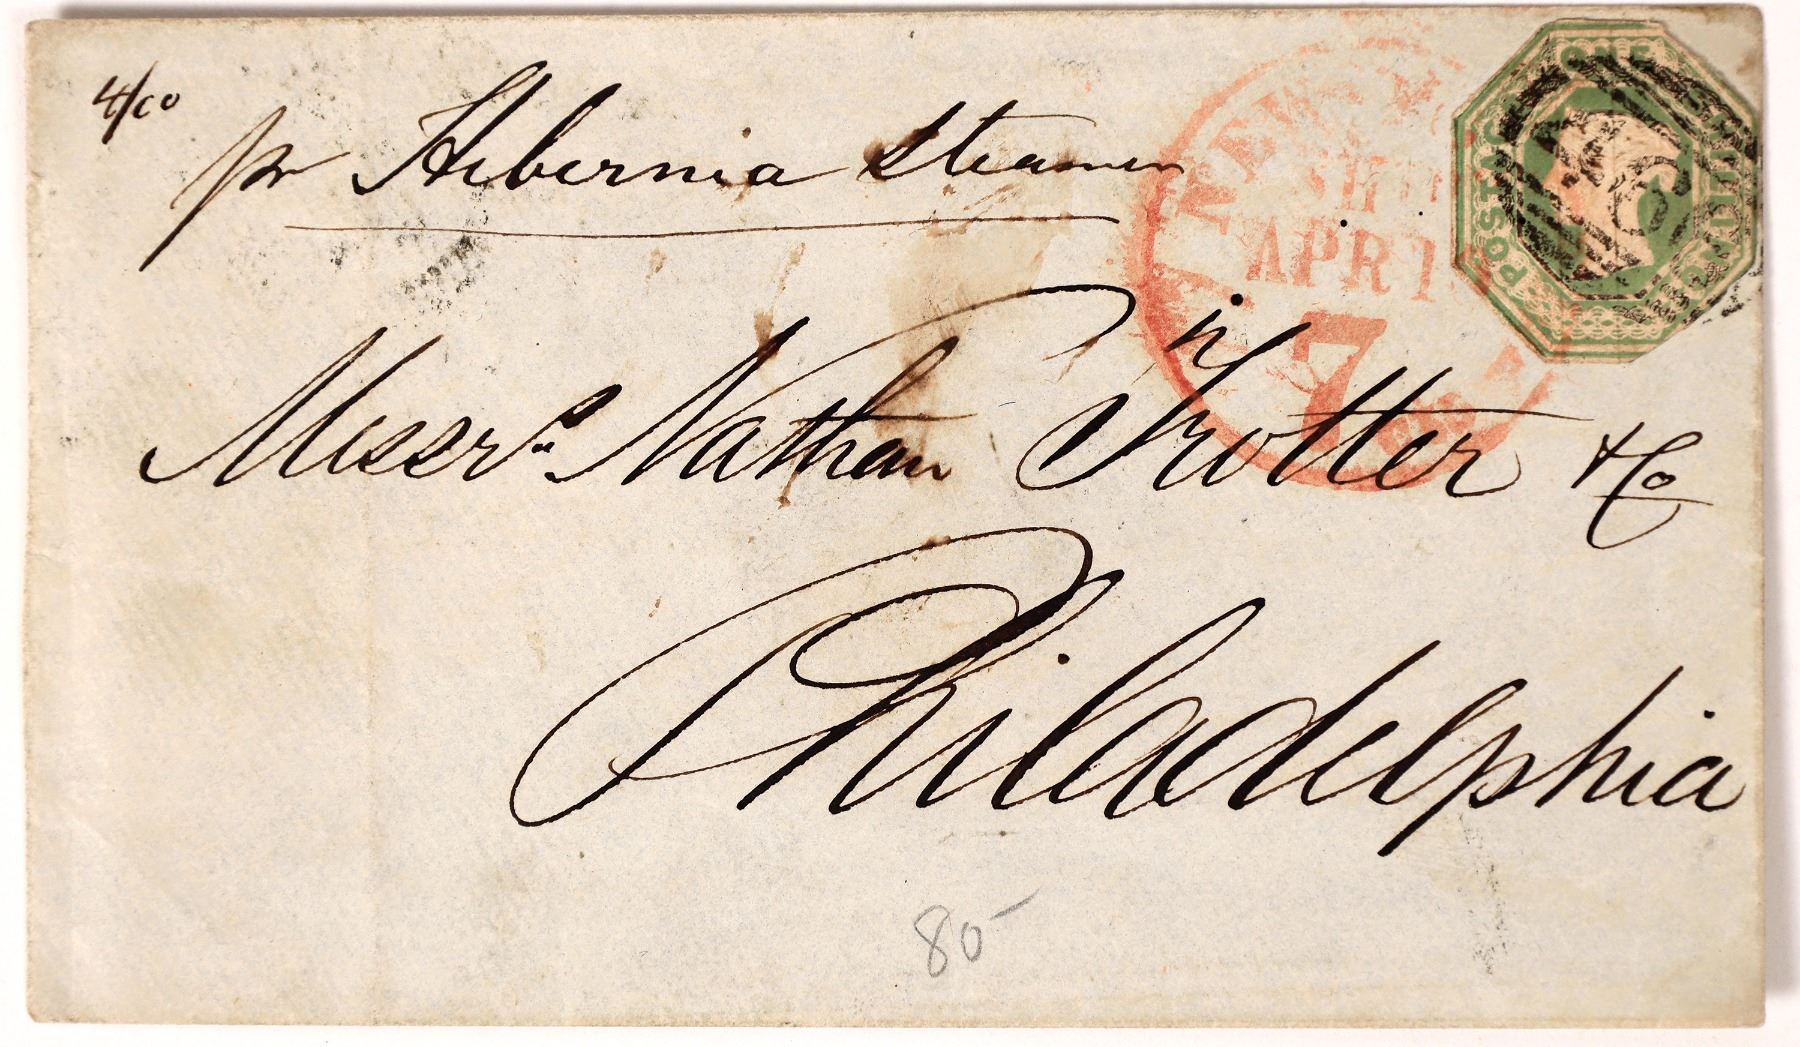 4/co
pr Hibernia Steamer
NEW
SHIP
APR 1
7
ONE
POSTAGE
SHILLING
Messrs. Nathan Trotter & Co
Philadelphia
80